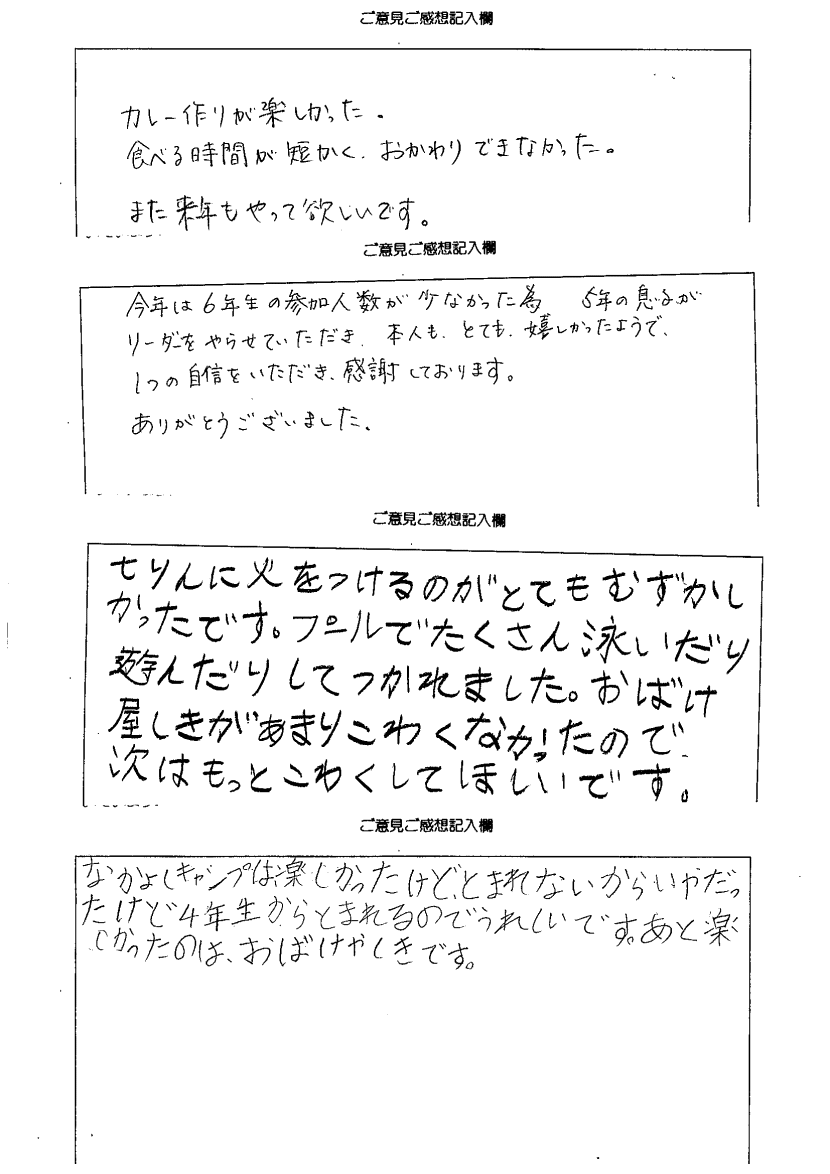 ご意見ご感想記入欄
カレー作りが楽しかった。
食べる時間が短かく、おかわりできなかった。
また来年もやって欲しいです。
ご意見ご感想記入欄
今年は6年生の参加人数が少なかった為 5年の息子が
リーダーをやらせていただき、本人も、とても、嬉しかったようで、
1つの自信をいただき、感謝しております。
ありがとうございました、
ご意見ご感想記入欄
七りんに火をつけるのがとてもむずかし
かったです。プールでたくさん泳いだり
遊んだりしてつかれました。おばけ
屋しきがあまりこわくなかったので、
次はもっとこわくしてほしいです。
ご意見ご感想記入欄
なかよしキャンプは、楽しかったけど、とまれないからいやだっ
たけど4年生からとまれるのでうれしいです。あと楽
しかったのは、おばけやしきです。